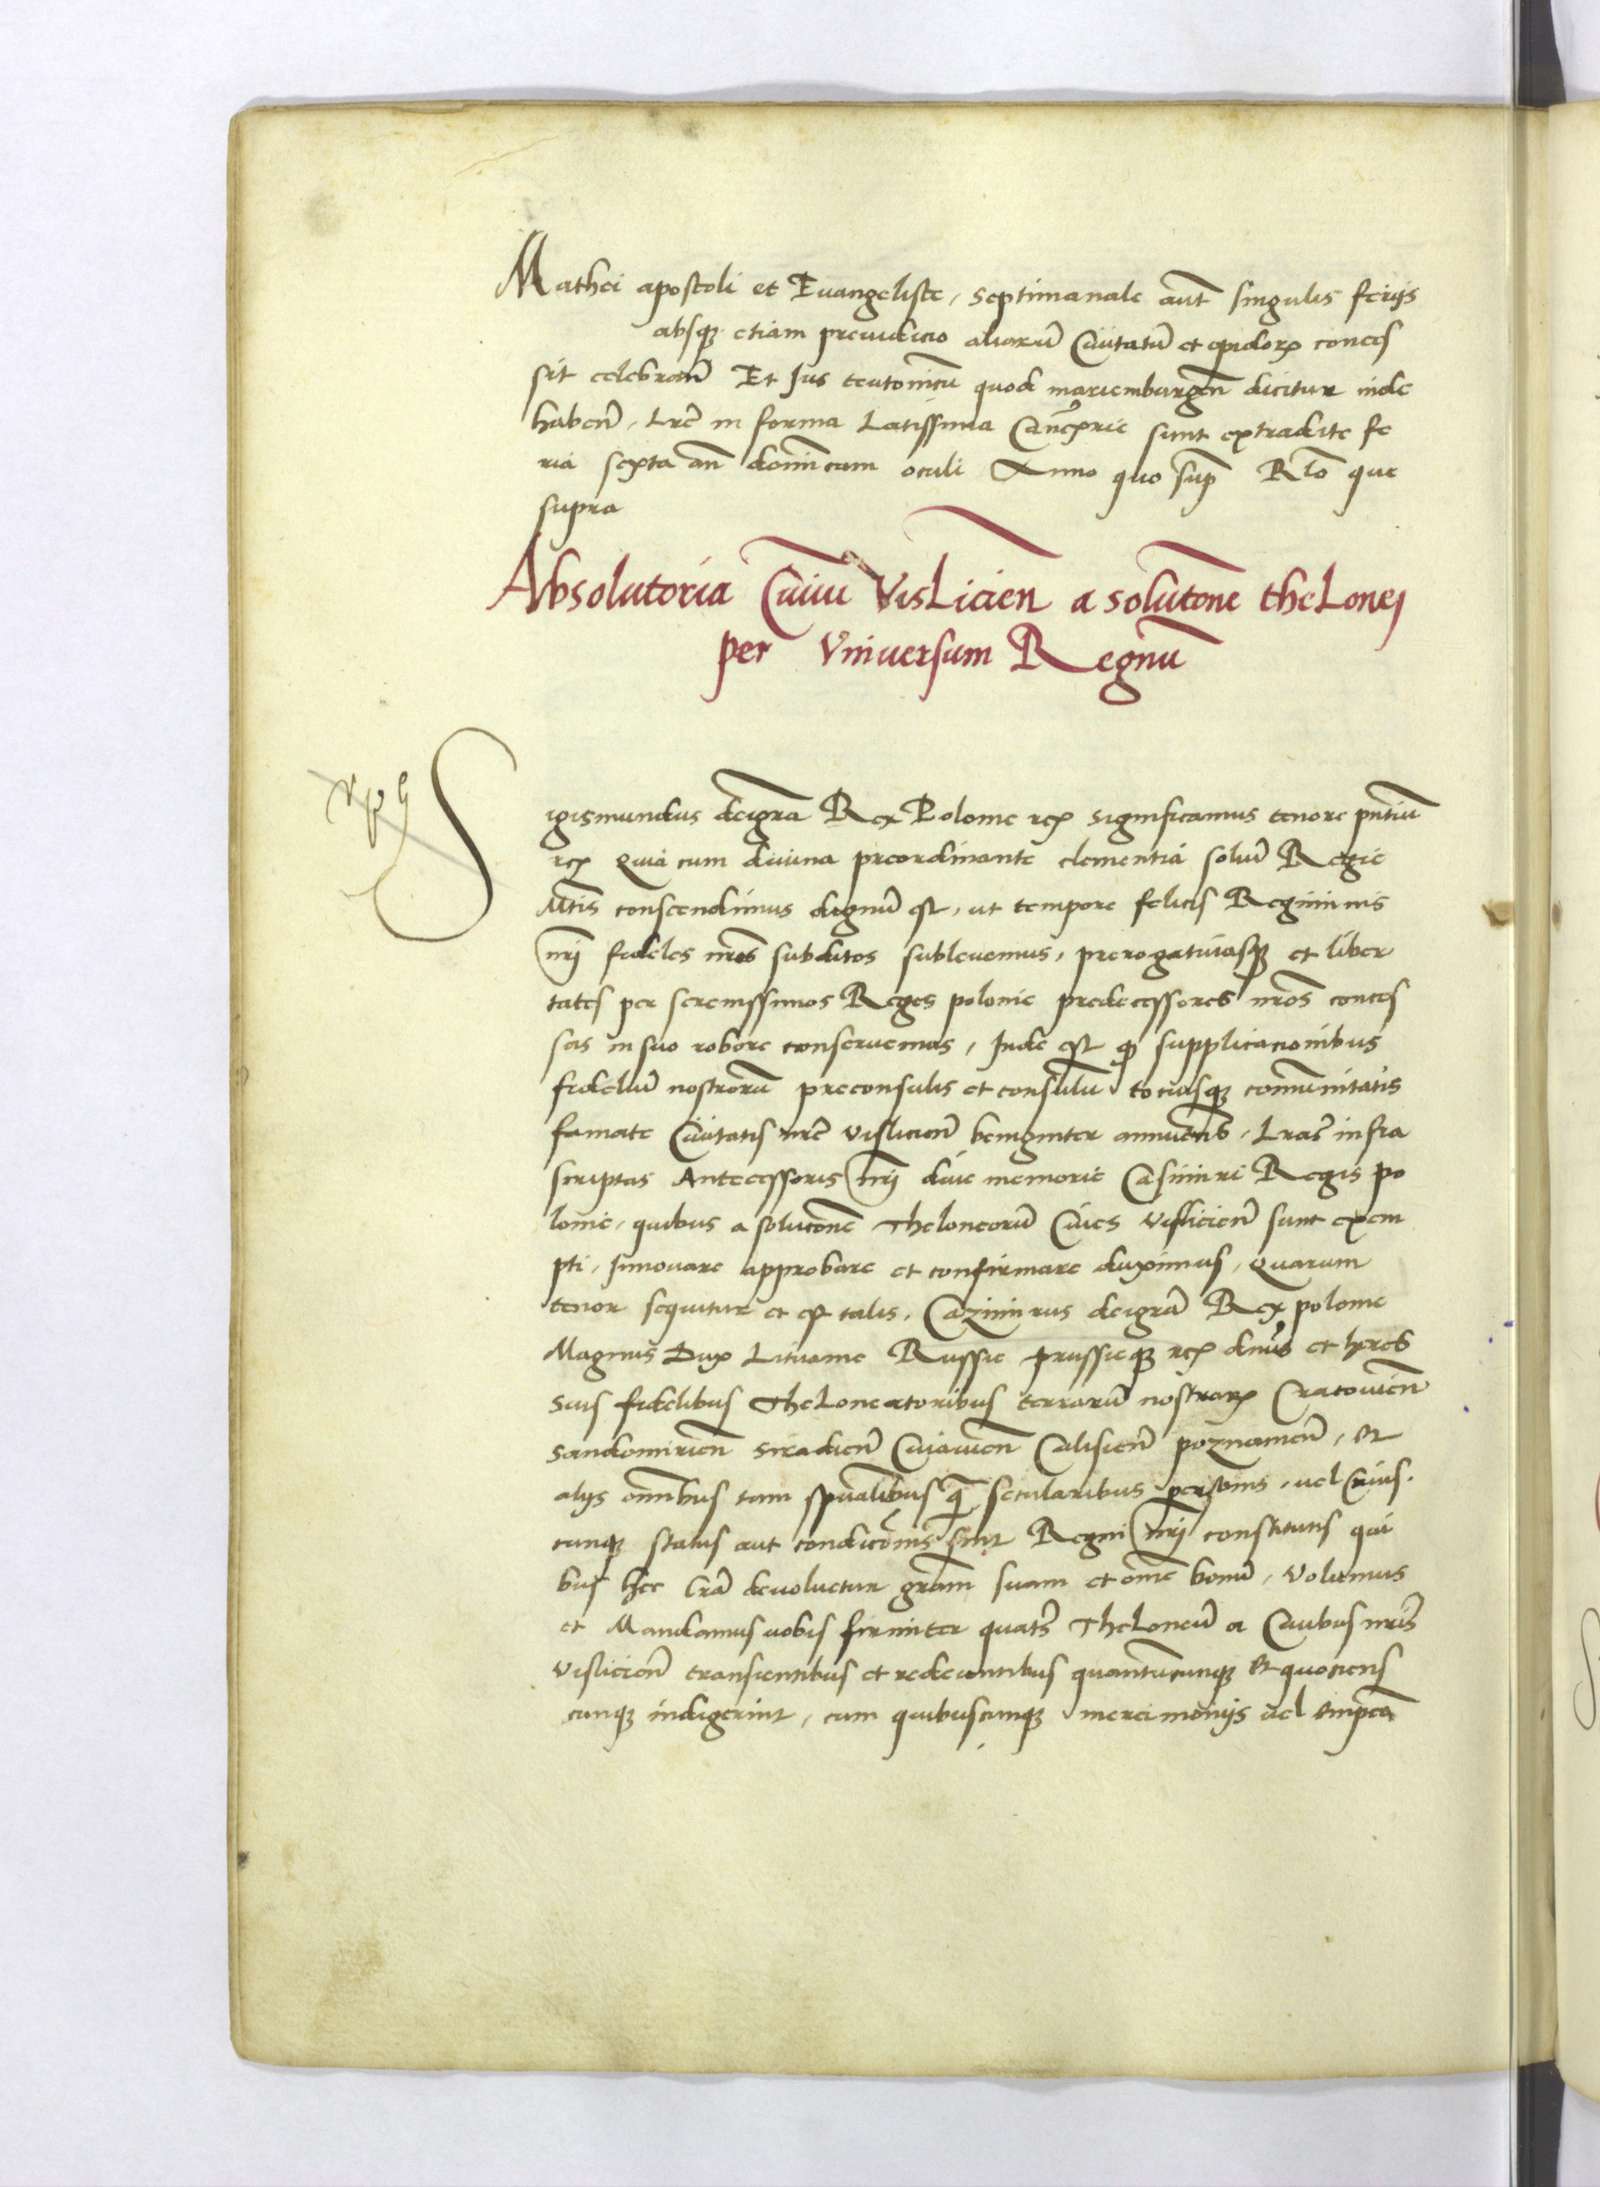 Mathei apostoli et Evangeliste, septimanale aut̄ singulis ferijs
absqȝ etiam preiudicio aliorū Civitatū et opidoꝝ conces
sit celebran̄ Et Ius teutonicū quod mariemburgen̄ dicitur inde
haben̄, Lr̄e in forma Latissima Canc̄rie sunt extradite fe
ria sexta an̄ domīcam oculi Anno quo sup̄ Rl̄o que
supra
Absolutoria Civiū Vislicien̄ a solutōne theLonej
per Vniversum Regnū
Sigismundus deigrā Rex Polonie rcꝝ significamus tenore pn̄tiū
rcꝝ Quia cum divina preordinante clementia soliū Regie
Mt̄is conscendimus dignū est, ut tempore felicis Regiminis
nr̄j fideles nr̄os subditos sublevemus, prerogativasqȝ et liber
tates per serenissimos Reges polonie predecessores nr̄os conces
sas in suo robore conservemus, Inde est qȝ supplicacionibus
fideliū nostrorū preconsulis et consulū tociusqȝ com̄unitatis
famate Civitatis nr̄e vislicien̄ benigniter annuen̄tes, Lr̄as infra
scriptas Antecessoris nr̄j divie memorie Casimiri Regis po
lonie, quibus a solutōne Theloneorū Cives vislicien̄ sunt exem
pti, Innovare approbare et confirmare duximus, Quarum
tenor sequitur et est talis, Cazimirus deigrā Rex polonie
Magnus Dux Lituanie Russie prussieqȝ rcꝝ dn̄us et hr̄es
Suis fidelibus TheLoneatoribus terrarū nostraꝝ Cracovien̄
Sandomirien̄ Siradien̄ Cuiavien̄ Calisien̄ poznanien̄, Et
alijs om̄ibus tam spūalibus qͣ̄ secularibus personis, vel Cuius
cunqȝ status aut condicōnis sint Regni nr̄j constitutis qui
bus hec Lr̄a devolvetur grām suam et om̄e bonū, Volumus
et Mandamus vobis firmiter quat̄s TheLoneū a Civibus nr̄is
vislicien̄ transientibus et redeuntibus quantūcunqȝ Et quociens
cunqȝ indigerint, cum quibuscunqȝ mercimonijs vel empcā